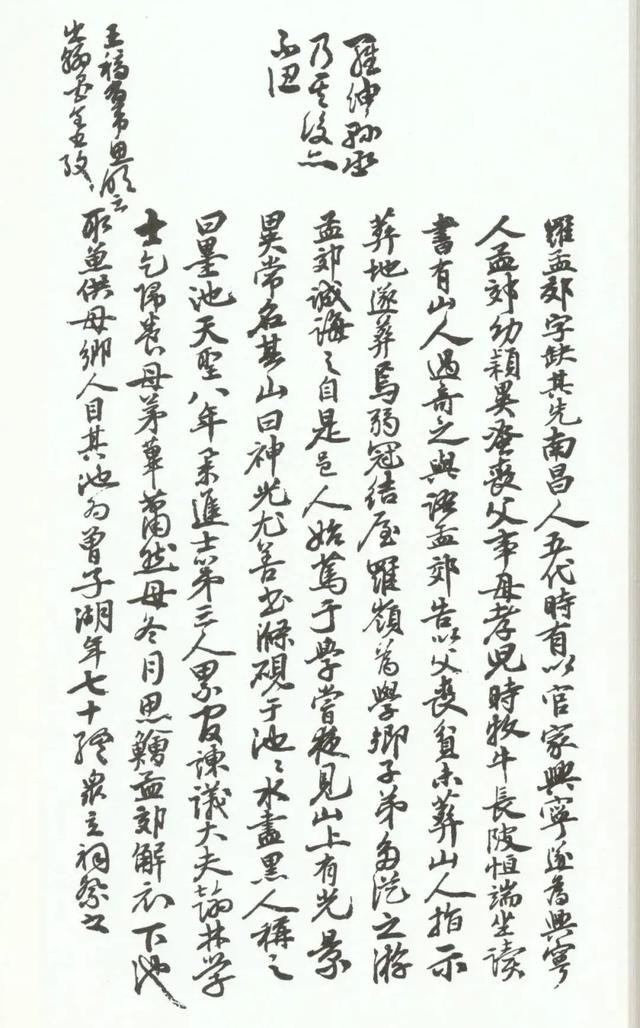 羅孟郊字缺其先南昌人五代時有以官家興寧遂為興寧
人孟郊幼穎異蚤喪父事母孝兒時牧牛長陂恒端坐讀
書有山人過奇之與語孟郊告以父喪貧未葬山人指示
葬地遂葬焉弱冠結屋羅嶺為學鄉子弟多從之游
孟郊誠誨之自是邑人始篤于學嘗夜見山上有光景
異常名其山曰神光尤善書滌硯于池池水盡黑人稱之
曰墨池天聖八年第進士第三人累官諫議大夫翰林学
士乞歸養母茅葦蕭然母冬月思鱠孟郊解衣下池
取魚供母鄉人目其池為曾子湖年七十終眾立祠祭之
羅紳孫丞
乃其後